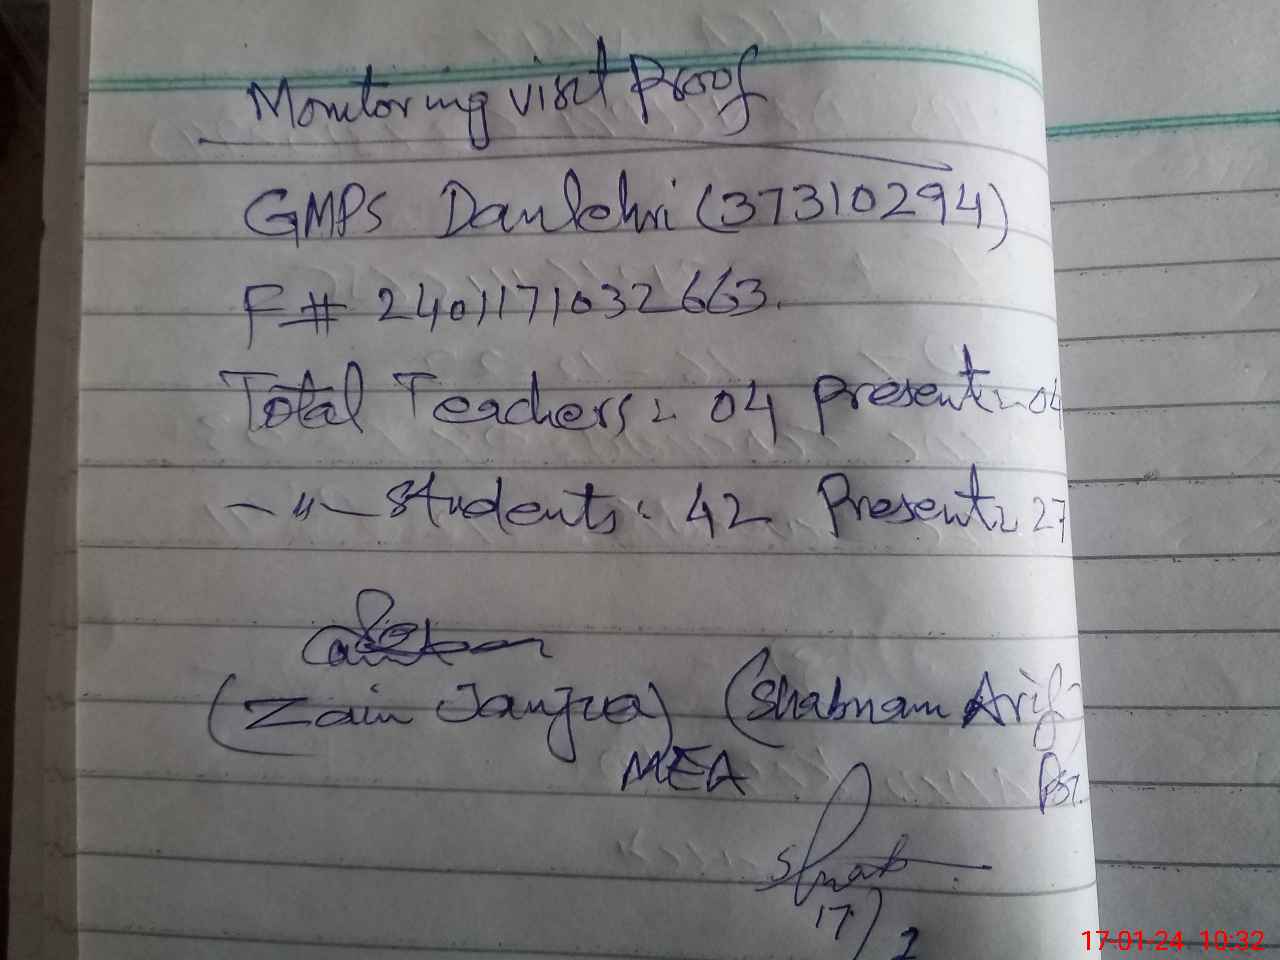 Monitoring visit Proof
GMPS Daulehri (37310294)
F# 2401171032663.
Total Teachers = 04 Present = 04
-"- Students = 42 Present = 27
(Zain Janjua) (Shabnam Arif)
MEA PST
17/
17-01-24 10:32